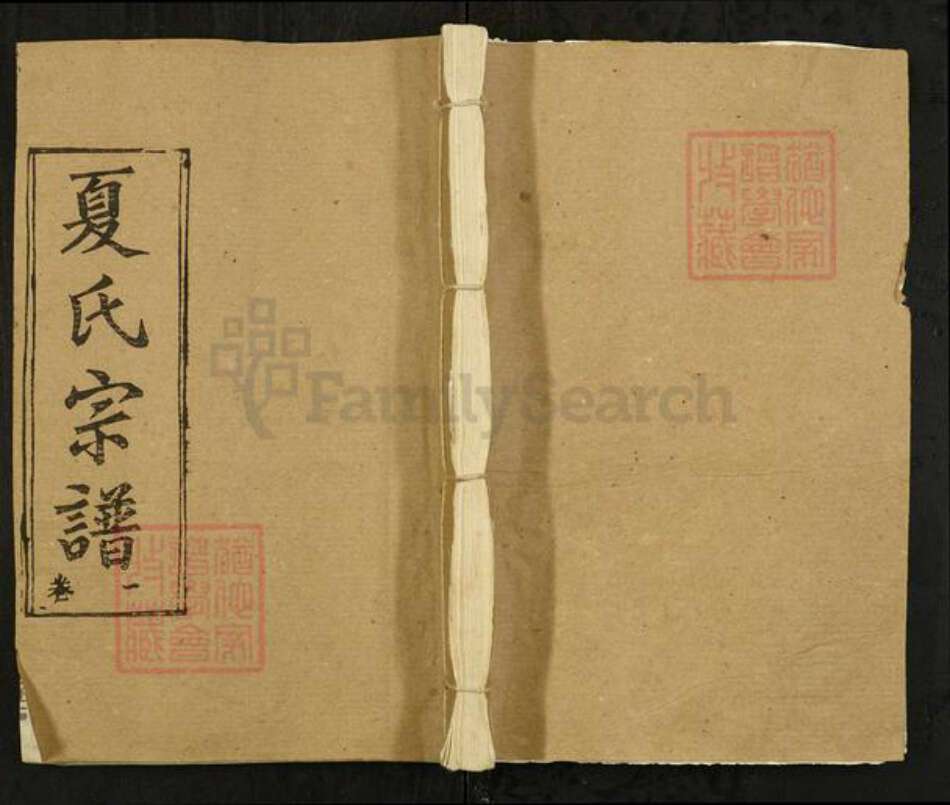 夏氏宗譜
卷一
猶他家譜學會收藏
FamilySearch
猶他家譜學會收藏